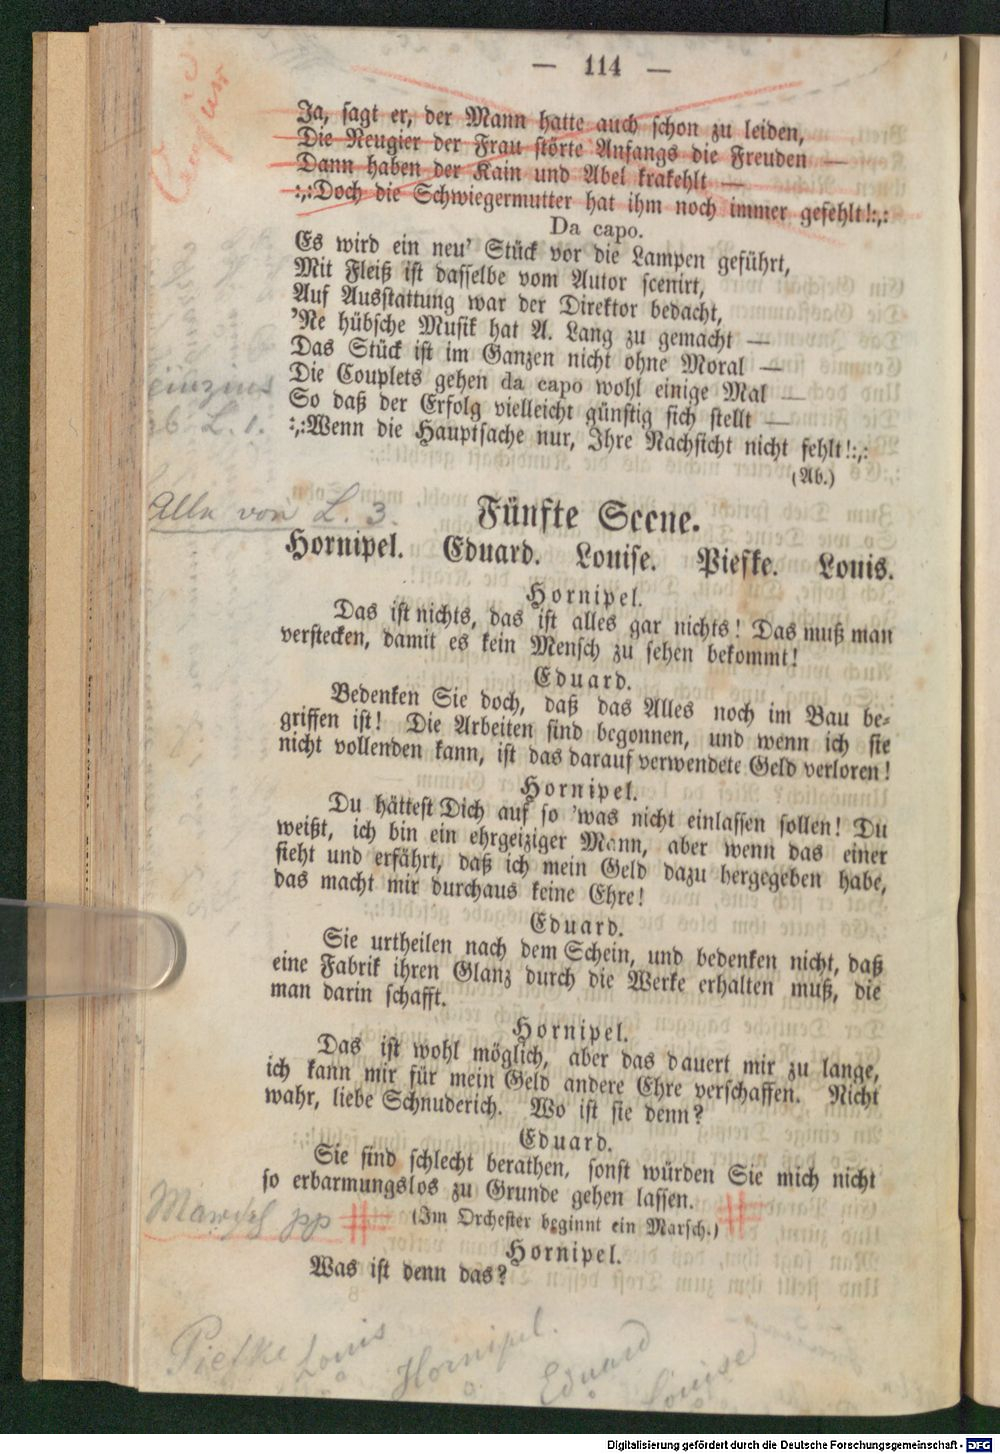 — 114 —
Ja, sagt er, der Mann hatte auch schon zu leiden,
Die Neugier der Frau störte Anfangs die Freuden —
Dann haben der Kain und Abel krakehlt —
:,:Doch die Schwiegermutter hat ihm noch immer gefehlt!:,:
Da capo.
Es wird ein neu' Stück vor die Lampen geführt,
Mit Fleiß ist dasselbe vom Autor scenirt,
Auf Ausstattung war der Direktor bedacht,
'Ne hübsche Musik hat A. Lang zu gemacht —
Das Stück ist im Ganzen nicht ohne Moral —
Die Couplets gehen da capo wohl einige Mal —
So daß der Erfolg vielleicht günstig sich stellt —
ab L. 1.
:,:Wenn die Hauptsache nur, Ihre Nachsicht nicht fehlt!:,:
(Ab.)
Alle von L. 3.
Fünfte Scene.
Hornipel. Eduard. Louise. Piefke. Louis.
Hornipel.
Das ist nichts, das ist alles gar nichts! Das muß man
verstecken, damit es kein Mensch zu sehen bekommt!
Eduard.
Bedenken Sie doch, daß das Alles noch im Bau be-
griffen ist! Die Arbeiten sind begonnen, und wenn ich sie
nicht vollenden kann, ist das darauf verwendete Geld verloren!
Hornipel.
Du hättest Dich auf so 'was nicht einlassen sollen! Du
weißt, ich bin ein ehrgeiziger Mann, aber wenn das einer
sieht und erfährt, daß ich mein Geld dazu hergegeben habe,
das macht mir durchaus keine Ehre!
Eduard.
Sie urtheilen nach dem Schein, und bedenken nicht, daß
eine Fabrik ihren Glanz durch die Werke erhalten muß, die
man darin schafft.
Hornipel.
Das ist wohl möglich, aber das dauert mir zu lange,
ich kann mir für mein Geld andere Ehre verschaffen. Nicht
wahr, liebe Schnuderich. Wo ist sie denn?
Eduard.
Sie sind schlecht berathen, sonst würden Sie mich nicht
so erbarmungslos zu Grunde gehen lassen.
pp # (Im Orchester beginnt ein Marsch.) #
Hornipel.
Was ist denn das?
Piefke Louis Hornipel. Eduard Louise
Digitalisierung gefördert durch die Deutsche Forschungsgemeinschaft - DFG